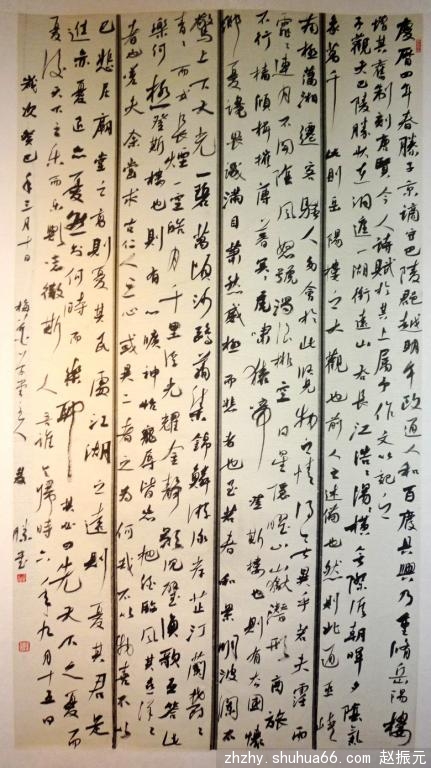 慶曆四年春滕子京謫守巴陵郡越明年政通人和百廢具興乃重修岳陽樓
增其舊制刻唐賢今人詩賦於其上屬予作文以記之
予觀夫巴陵勝狀在洞庭一湖銜遠山吞長江浩浩湯湯橫無際涯朝暉夕陰氣
象萬千此則岳陽樓之大觀也前人之述備也然則北通巫峽
南極瀟湘遷客騷人多會於此覽物之情得無異乎若夫霪雨
霏霏連月不開陰風怒號濁浪排空日星隱曜山嶽潛形商旅
不行檣傾楫摧薄暮冥冥虎嘯猿啼登斯樓也則有去國懷
鄉憂讒畏譏滿目蕭然感極而悲者也至若春和景明波瀾不
驚上下天光一碧萬頃沙鷗翔集錦鱗游泳岸芷汀蘭郁〻
青〻而或長煙一空皓月千里浮光耀金靜影沉璧漁歌互答此
樂何極登斯樓也則有心曠神怡寵辱皆忘把酒臨風其喜洋〻
者也嗟夫余嘗求古仁人之心或異二者之為何哉不以物喜不以
已悲居廟堂之高則憂其民處江湖之遠則憂其君是
進亦憂退亦憂然則何時而樂耶其必曰先天下之憂而
憂後天下之樂而樂歟噫微斯人吾誰與歸時六年九月十五日
歲次癸巳年三月十日梅花草堂主人
zhzhy.shuhua66.com 赵振元